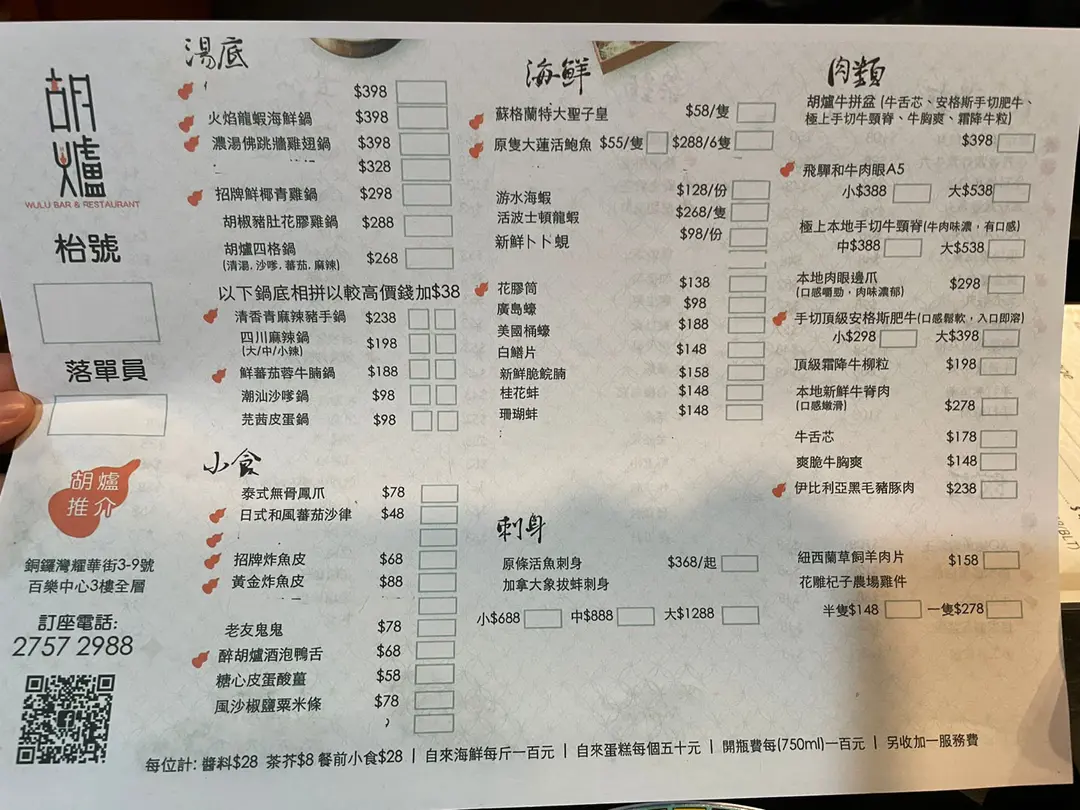 胡爐
WULU BAR & RESTAURANT
枱號
落單員
胡爐
推介
銅鑼灣耀華街3-9號
百樂中心3樓全層
訂座電話:
2757 2988
湯底
$398
火焰龍蝦海鮮鍋 $398
濃湯佛跳牆雞翅鍋 $398
$328
招牌鮮椰青雞鍋 $298
胡椒豬肚花膠雞鍋 $288
胡爐四格鍋 $268
(清湯, 沙嗲, 蕃茄, 麻辣)
以下鍋底相拼以較高價錢加$38
清香青麻辣豬手鍋 $238
四川麻辣鍋 $198
(大/中/小辣)
鮮蕃茄蓉牛腩鍋 $188
潮汕沙嗲鍋 $98
芫茜皮蛋鍋 $98
小食
泰式無骨鳳爪 $78
日式和風蕃茄沙律 $48
招牌炸魚皮 $68
黃金炸魚皮 $88
老友鬼鬼 $78
醉胡爐酒泡鴨舌 $68
糖心皮蛋酸薑 $58
風沙椒鹽粟米條 $78
海鮮
蘇格蘭特大聖子皇 $58/隻
原隻大蓮活鮑魚 $55/隻 $288/6隻
游水海蝦 $128/份
活波士頓龍蝦 $268/隻
新鮮卜卜蜆 $98/份
花膠筒 $138
廣島蠔 $98
美國桶蠔 $188
白鱔片 $148
新鮮脆鯇腩 $158
桂花蚌 $148
珊瑚蚌 $148
刺身
原條活魚刺身 $368/起
加拿大象拔蚌刺身
小$688 中$888 大$1288
肉類
胡爐牛拼盆 (牛舌芯、安格斯手切肥牛、
極上手切牛頸脊、牛胸爽、霜降牛粒)
$398
飛驒和牛肉眼A5
小$388 大$538
極上本地手切牛頸脊(牛肉味濃，有口感)
中$388 大$538
本地肉眼邊爪 $298
(口感嚼勁，肉味濃郁)
手切頂級安格斯肥牛(口感鬆軟，入口即溶)
小$298 大$398
頂級霜降牛柳粒 $198
本地新鮮牛脊肉
(口感嫩滑) $278
牛舌芯 $178
爽脆牛胸爽 $148
伊比利亞黑毛豬豚肉 $238
紐西蘭草飼羊肉片 $158
花雕杞子農場雞件
半隻$148 一隻$278
每位計: 醬料$28 茶芥$8 餐前小食$28 | 自來海鮮每斤一百元 | 自來蛋糕每個五十元 | 開瓶費每(750ml)一百元 | 另收加一服務費